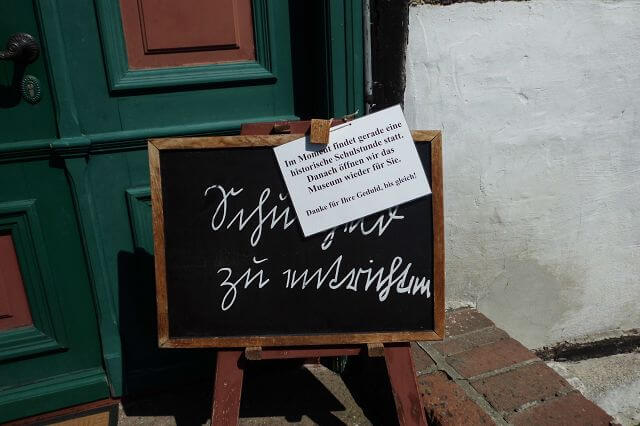 Im Moment findet gerade eine
historische Schulstunde statt.
Danach öffnen wir das
Museum wieder für Sie.
Danke für Ihre Geduld, bis gleich!
Schulgeld
zu entrichten